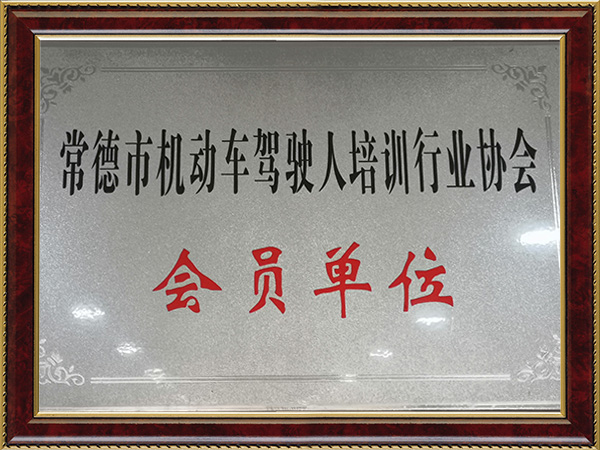 常德市机动车驾驶人培训行业协会
会员单位